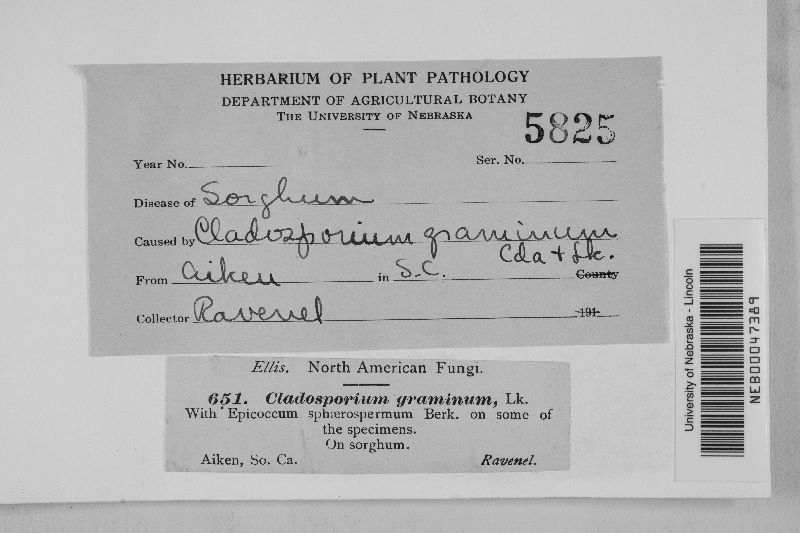 HERBARIUM OF PLANT PATHOLOGY
DEPARTMENT OF AGRICULTURAL BOTANY
THE UNIVERSITY OF NEBRASKA
5825
Year No. Ser. No.
Disease of Sorghum
Caused by Cladosporium graminum
Cda + Lk.
From Aiken in S.C. County
Collector Ravenel 191
Ellis. North American Fungi.
651. Cladosporium graminum, Lk.
With Epicoccum sphærospermum Berk. on some of
the specimens.
On sorghum.
Aiken, So. Ca. Ravenel.
University of Nebraska - Lincoln
NEB00047389